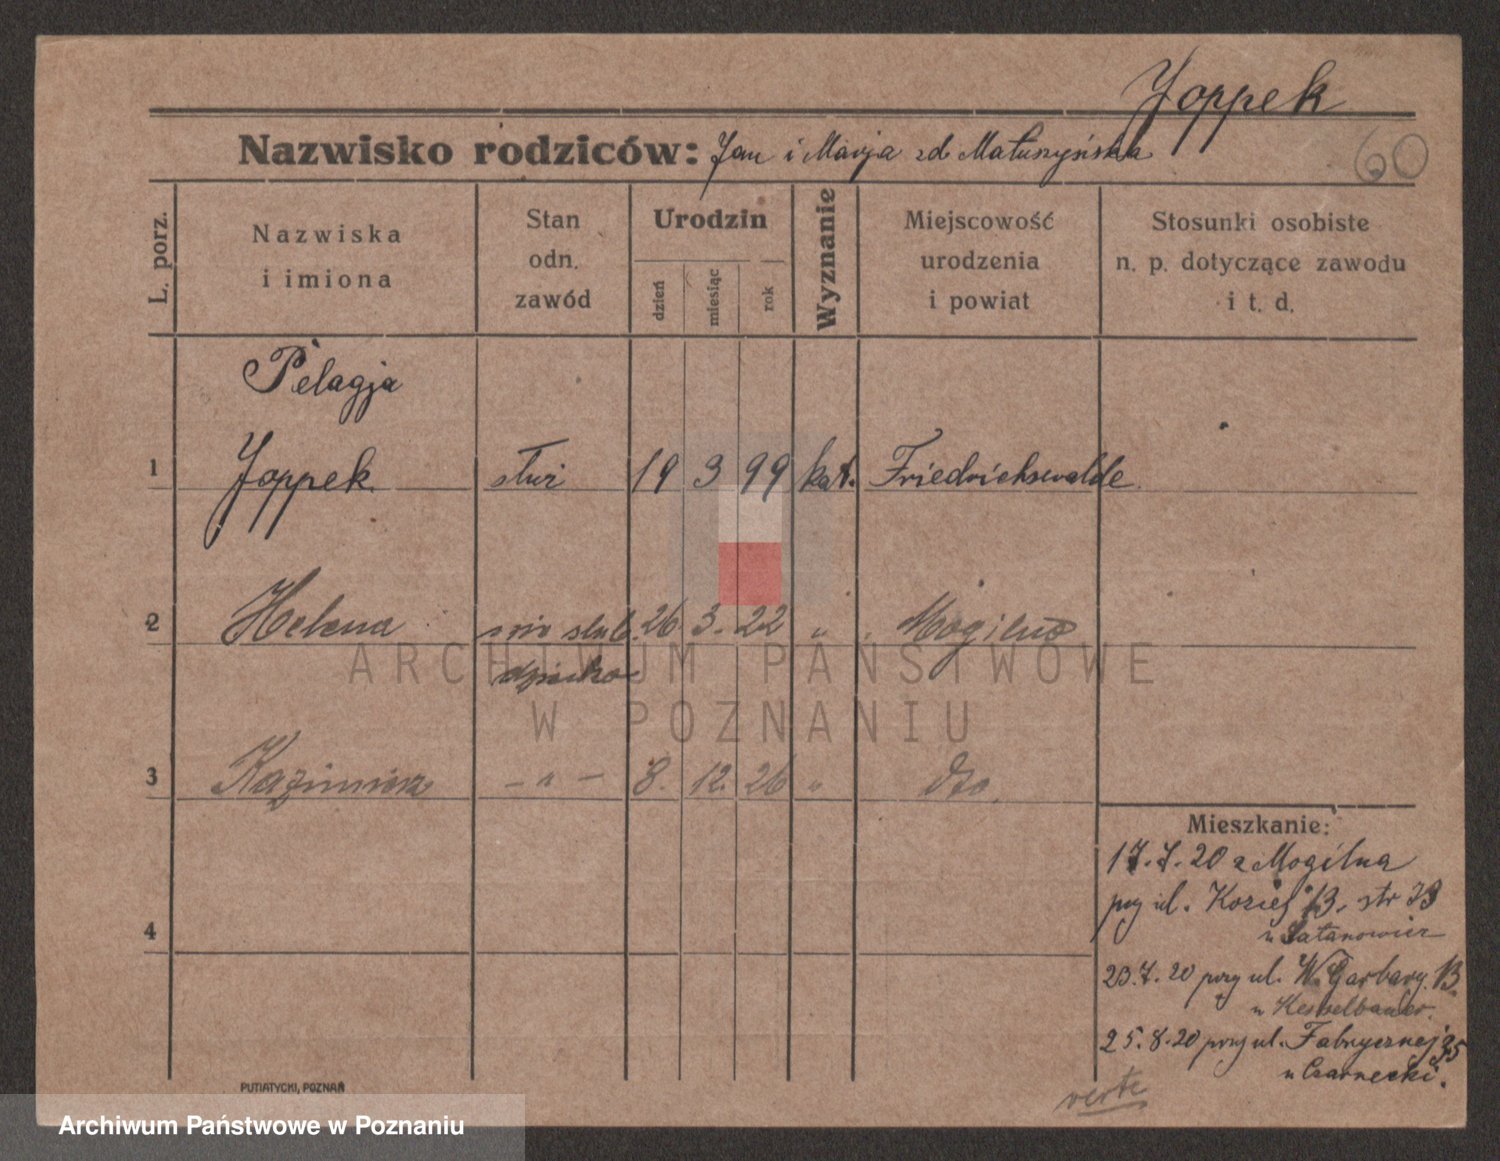 Joppek
Nazwisko rodziców: Jan i Marja zd Matuszyńska
60
L. porz.
Nazwiska
i imiona
Stan
odn.
zawód
Urodzin
dzień
miesiąc
rok
Wyznanie
Miejscowość
urodzenia
i powiat
Stosunki osobiste
n. p. dotyczące zawodu
i t. d.
Pelagja
1 Joppek służ 19 3 99 kat. Friedrichswalde
2 Helena nie ślub. 26 3. 22 " Mogilno
dziecko
3 Kazimierz – " – 8. 12. 26 " dto.
4
Mieszkanie:
17.7.20 z Mogilna
przy ul. Koziej 13. str 73
u Łatanowicz
23.7.20 przy ul. W. Garbary 13.
u Kesselbauer.
25.8.20 przy ul. Fabrycznej 35
u Czarnecki.
verte
PUTIATYCKI, POZNAŃ
ARCHIWUM PAŃSTWOWE
W POZNANIU
Archiwum Państwowe w Poznaniu